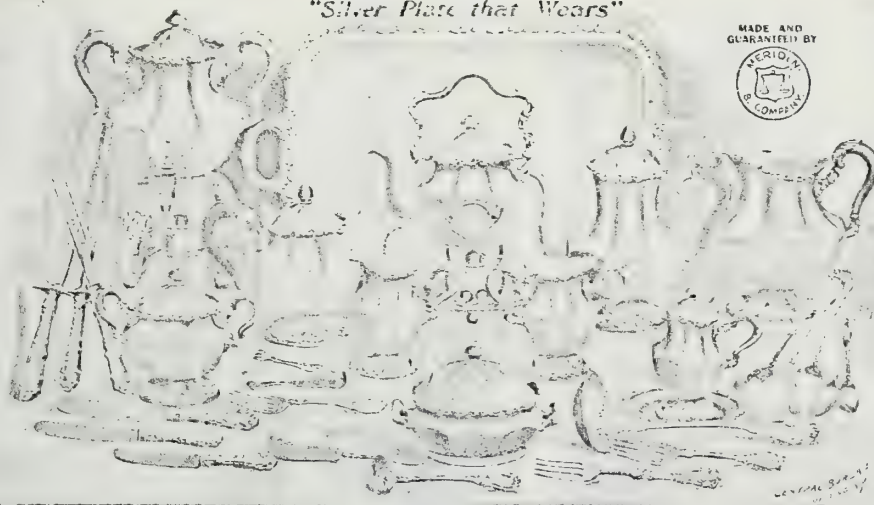 "Silver Plate that Wears"
MADE AND
GUARANTEED BY
MERIDEN
B. COMPANY
CENTRAL BUREAU